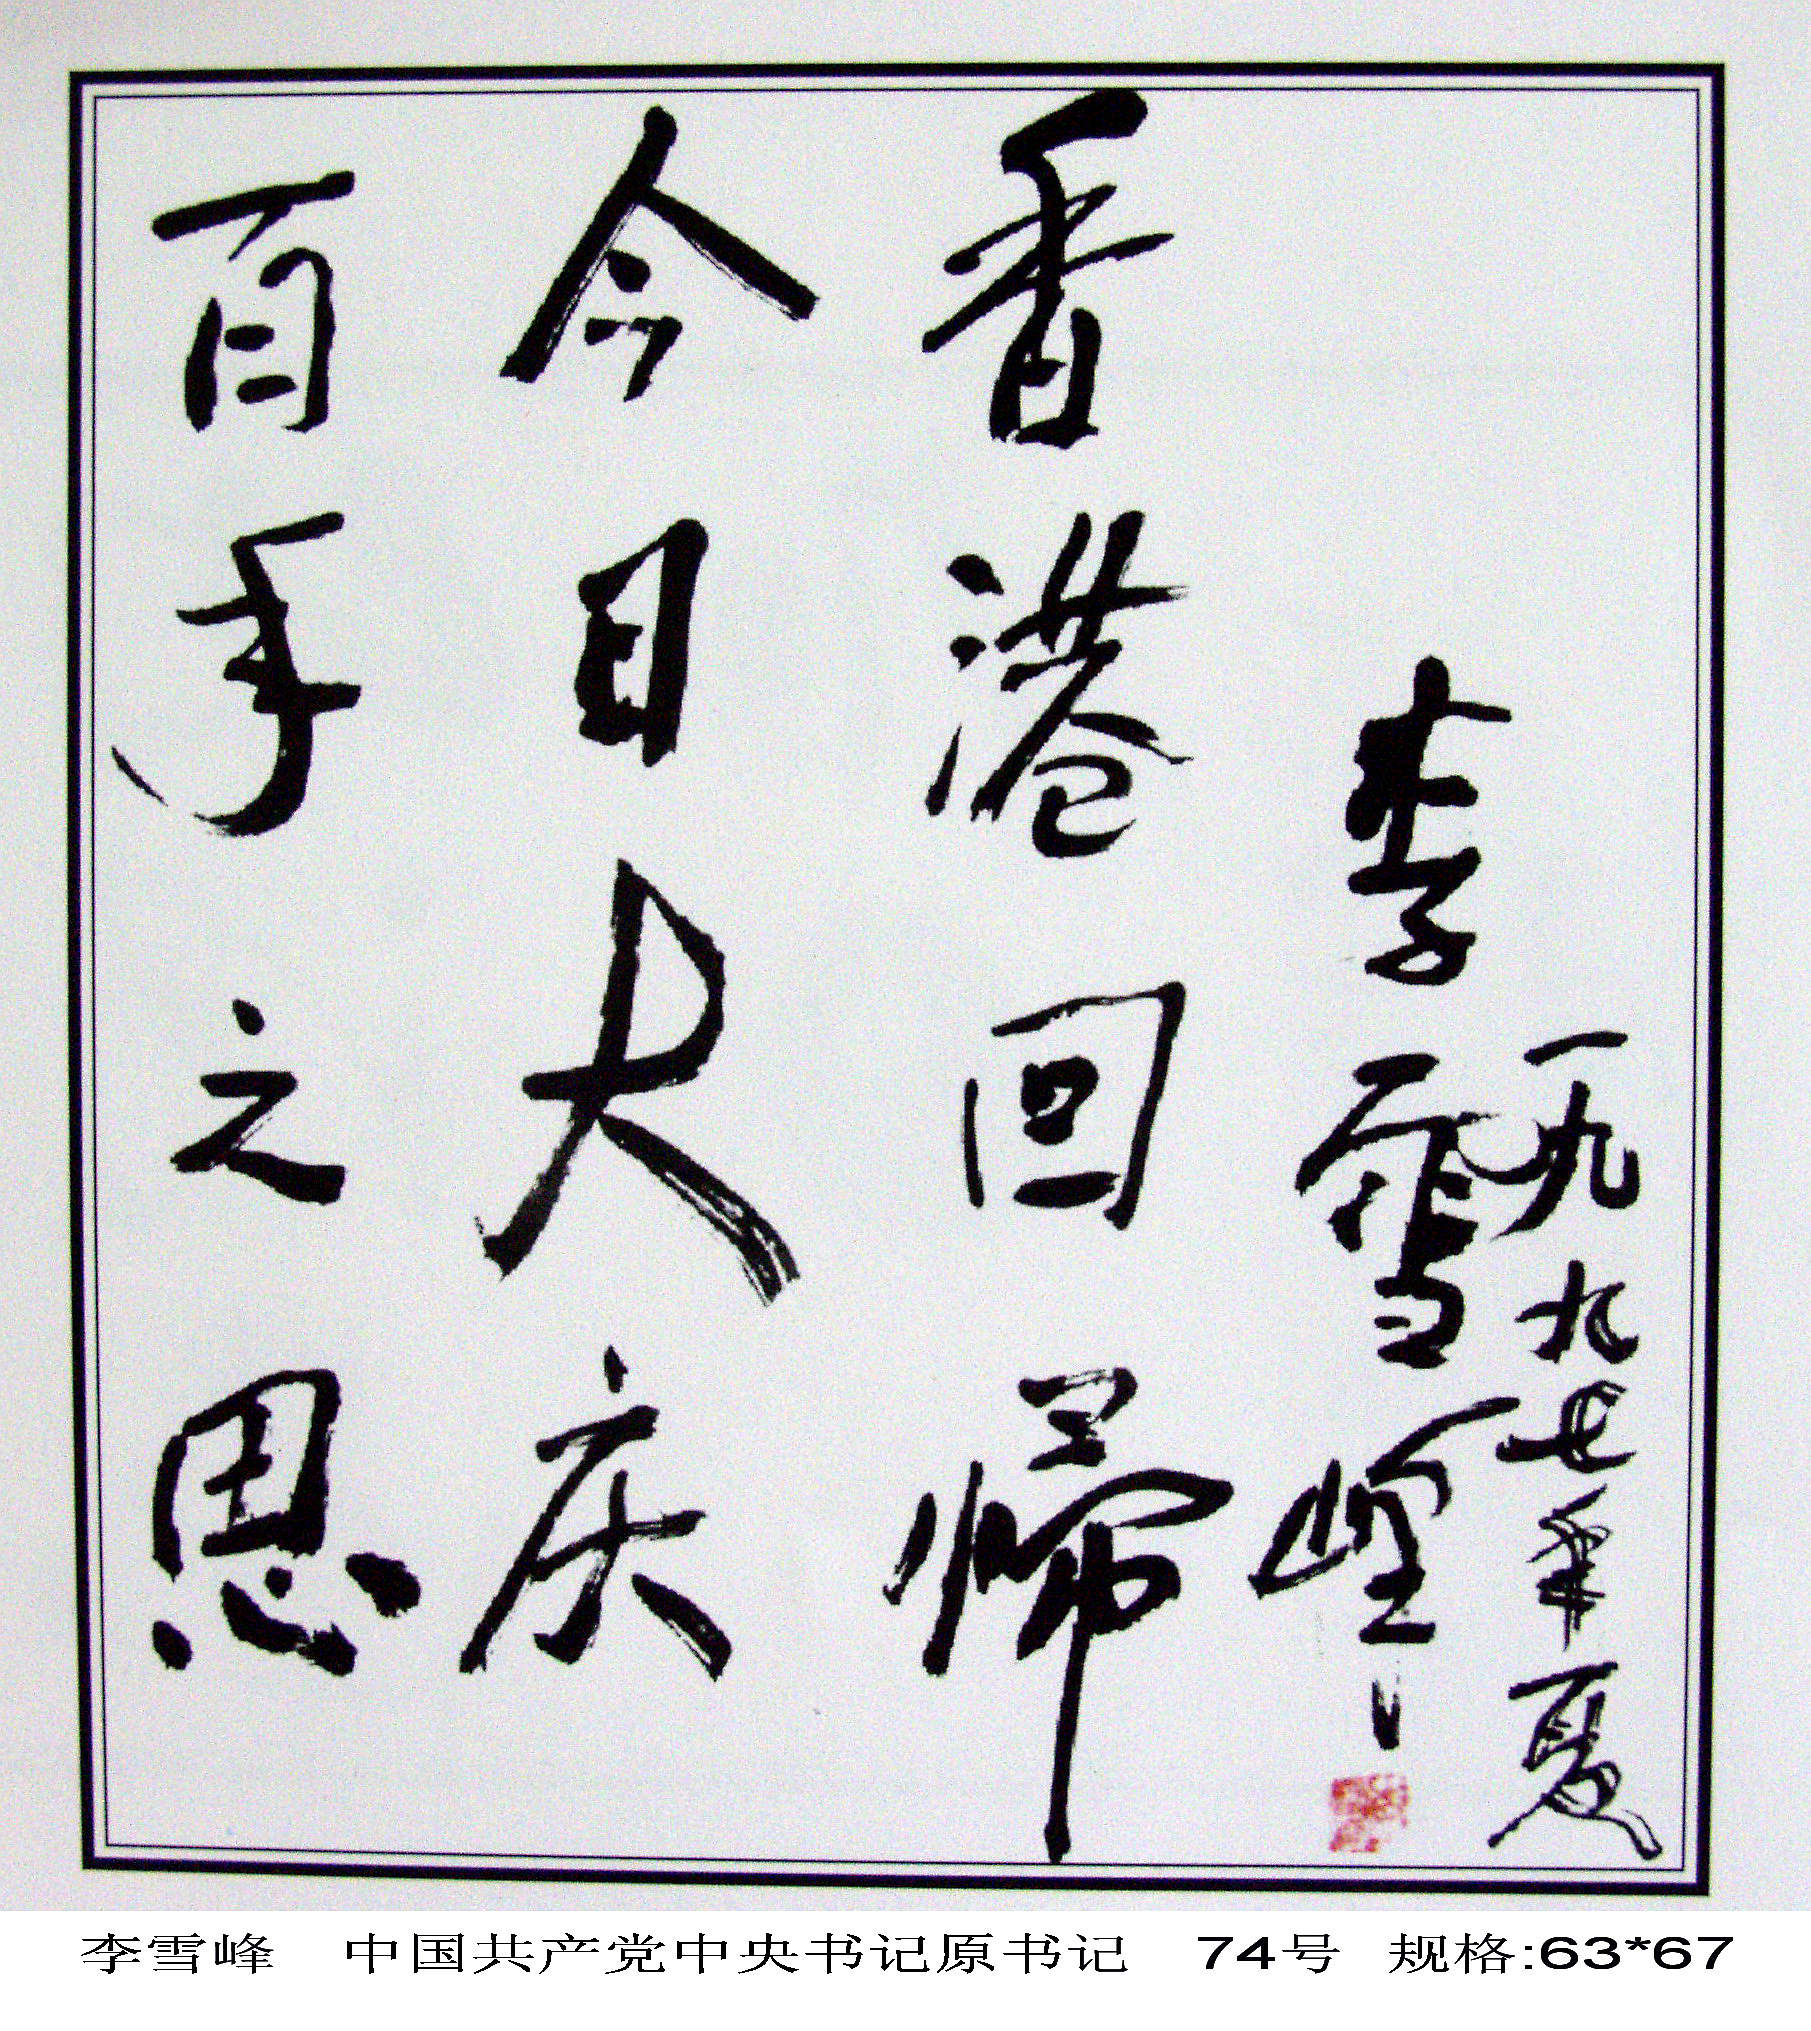 百年之思
今日大庆
香港回帰
李雪峰
一九九七年夏
李雪峰 中国共产党中央书记原书记 74号 规格:63*67